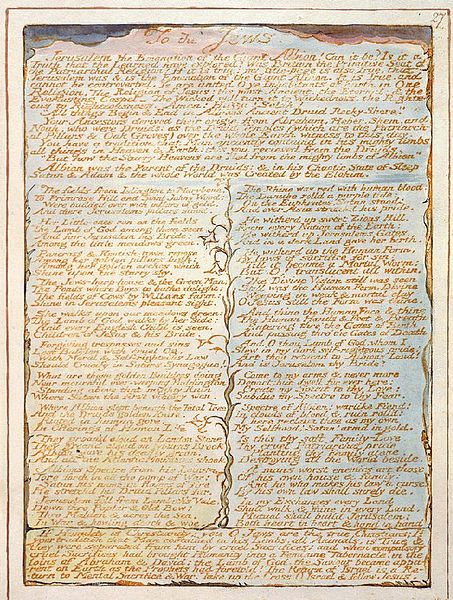 27
To the Jews
Jerusalem the Emanation of the Giant Albion! Can it be? Is it a
Truth that the Learned have explored? Was Britain the Primitive Seat of
the Patriarchal Religion? If it is true: my title-page is also True, that
Jerusalem was & is the Emanation of the Giant Albion. It is True, and
cannot be controverted. Ye are united O ye Inhabitants of Earth in One
Religion. The Religion of Jesus: the most Ancient, the Eternal: & the
Everlasting Gospel — The Wicked will turn it to Wickedness, the Righte-
ous to Righteousness. Amen! Huzza! Selah!
"All things Begin & End in Albions Ancient Druid Rocky Shore."
Your Ancestors derived their origin from Abraham, Heber, Shem, and
Noah, who were Druids: as the Druid Temples (which are the Patriarch-
al Pillars & Oak Groves) over the whole Earth witness to this day.
You have a tradition, that Man anciently containd in his mighty limbs
all things in Heaven & Earth: this you recieved from the Druids.
"But now the Starry Heavens are fled from the mighty limbs of Albion"
Albion was the Parent of the Druids; & in his Chaotic State of Sleep
Satan & Adam & the whole World was Created by the Elohim.
The fields from Islington to Marybone,
To Primrose Hill and Saint Johns Wood:
Were builded over with pillars of gold,
And there Jerusalems pillars stood.
Her Little-ones ran on the fields
The Lamb of God among them seen
And fair Jerusalem his Bride:
Among the little meadows green.
Pancrass & Kentish-town repose
Among her golden pillars high:
Among her golden arches which
Shine upon the starry sky.
The Jews-harp-house & the Green Man;
The Ponds where Boys to bathe delight:
The fields of Cows by Willans farm:
Shine in Jerusalems pleasant sight.
She walks upon our meadows green:
The Lamb of God walks by her side:
And every English Child is seen,
Children of Jesus & his Bride,
Forgiving trespasses and sins
Lest Babylon with cruel Og,
With Moral & Self-righteous Law
Should Crucify in Satans Synagogue!
What are those golden Builders doing
Near mournful ever-weeping Paddington
Standing above that mighty Ruin
Where Satan the first victory won.
Where Albion slept beneath the Fatal Tree
And the Druids golden Knife,
Rioted in human gore,
In Offerings of Human Life
They groan'd aloud on London Stone
They groan'd aloud on Tyburns Brook
Albion gave his deadly groan,
And all the Atlantic Mountains shook
Albions Spectre from his Loins
Tore forth in all the pomp of War!
Satan his name: in flames of fire
He stretch'd his Druid Pillars far.
Jerusalem fell from Lambeth's Vale,
Down thro Poplar & Old Bow;
Thro Malden & acros the Sea,
In War & howling death & woe.
The Rhine was red with human blood:
The Danube rolld a purple tide:
On the Euphrates Satan stood:
And over Asia stretch'd his pride.
He witherd up sweet Zions Hill,
From every Nation of the Earth:
He witherd up Jerusalems Gates,
And in a dark Land gave her birth.
He witherd up the Human Form,
By laws of sacrifice for sin:
Till it became a Mortal Worm:
But O! translucent all within.
The Divine Vision still was seen
Still was the Human Form, Divine
Weeping in weak & mortal clay
O Jesus still the Form was thine.
And thine the Human Face & thine
The Human Hands & Feet & Breath
Entering thro' the Gates of Birth
And passing thro' the Gates of Death
And O thou Lamb of God, whom I
Slew in my dark self-righteous pride:
Art thou return'd to Albions Land!
And is Jerusalem thy Bride?
Come to my arms & never more
Depart; but dwell for ever here:
Create my Spirit to thy Love:
Subdue my Spectre to thy Fear.
Spectre of Albion! warlike Fiend!
In clouds of blood & ruin roll'd:
I here reclaim thee as my own
My Selfhood! Satan! armd in gold.
Is this thy soft Family-Love
Thy cruel Patriarchal pride
Planting thy Family alone,
Destroying all the World beside.
A mans worst enemies are those
Of his own house & family;
And he who makes his law a curse,
By his own law shall surely die.
In my Exchanges every Land
Shall walk, & mine in every Land,
Mutual shall build Jerusalem:
Both heart in heart & hand in hand.
If Humility is Christianity; you O Jews are the true Christians; If
your tradition that Man contained in his Limbs, all Animals, is True &
they were separated from him by cruel Sacrifices: and when compulsory
cruel Sacrifices had brought Humanity into a Feminine Tabernacle, in the
loins of Abraham & David: the Lamb of God, the Saviour became appa-
rent on Earth as the Prophets had foretold? The Return of Israel is a Re-
turn to Mental Sacrifice & War. Take up the Cross O Israel & follow Jesus.